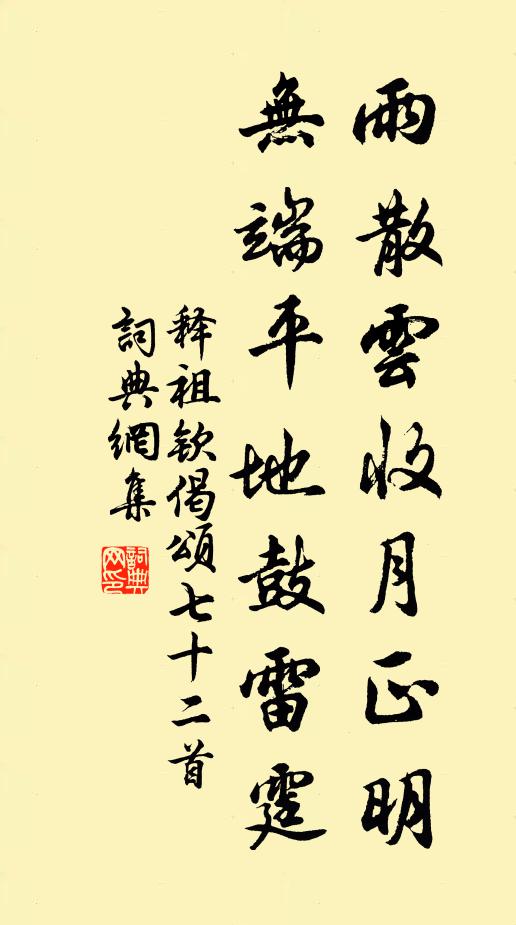 雨散雲收月正明
無端平地鼓雷霆
释祖钦偈颂七十二首
詞典網集
詞典网印